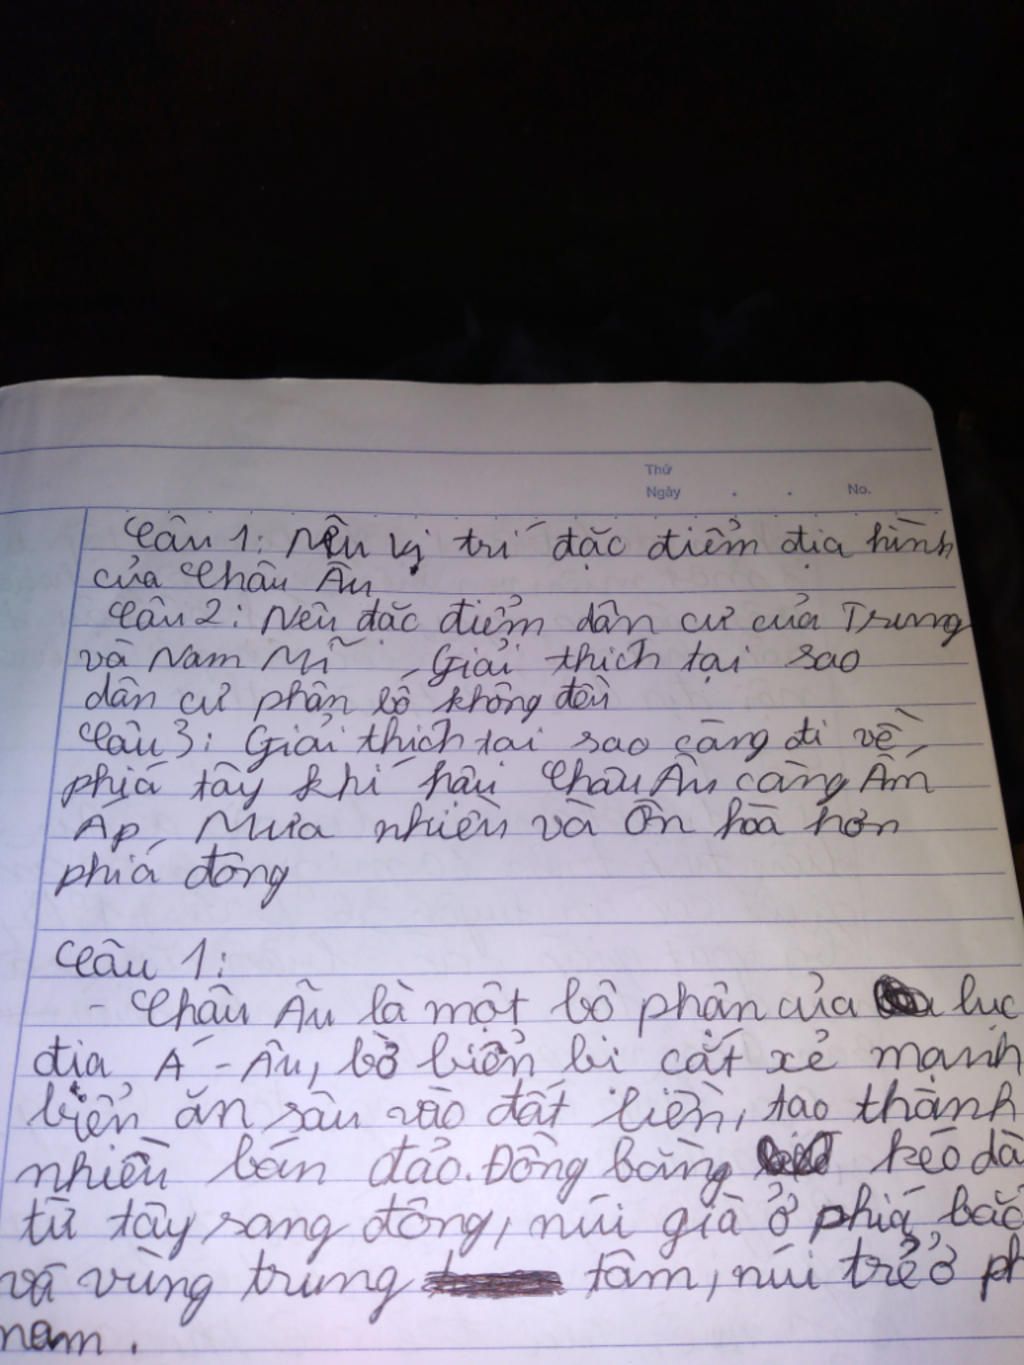 Thứ
Ngày . . No.
Câu 1: Nêu vị trí đặc điểm địa hình
của Châu Âu
Câu 2: Nêu đặc điểm dân cư của Trung
và Nam Mĩ, Giải thích tại sao
dân cư phân bố không đều
Câu 3: Giải thích tai sao càng đi về
phía tây khí hậu Châu Âu càng Ấm
Áp, Mưa nhiều và Ôn hòa hơn
phía đông
Câu 1:
- Châu Âu là một bộ phận của lục
địa Á - Âu, bờ biển bị cắt xẻ mạnh
biển ăn sâu vào đất liền, tạo thành
nhiều bán đảo. Đồng bằng kéo dà
từ tây sang đông, núi già ở phía bắc
và vùng trung tâm, núi trẻ ở ph
nam.